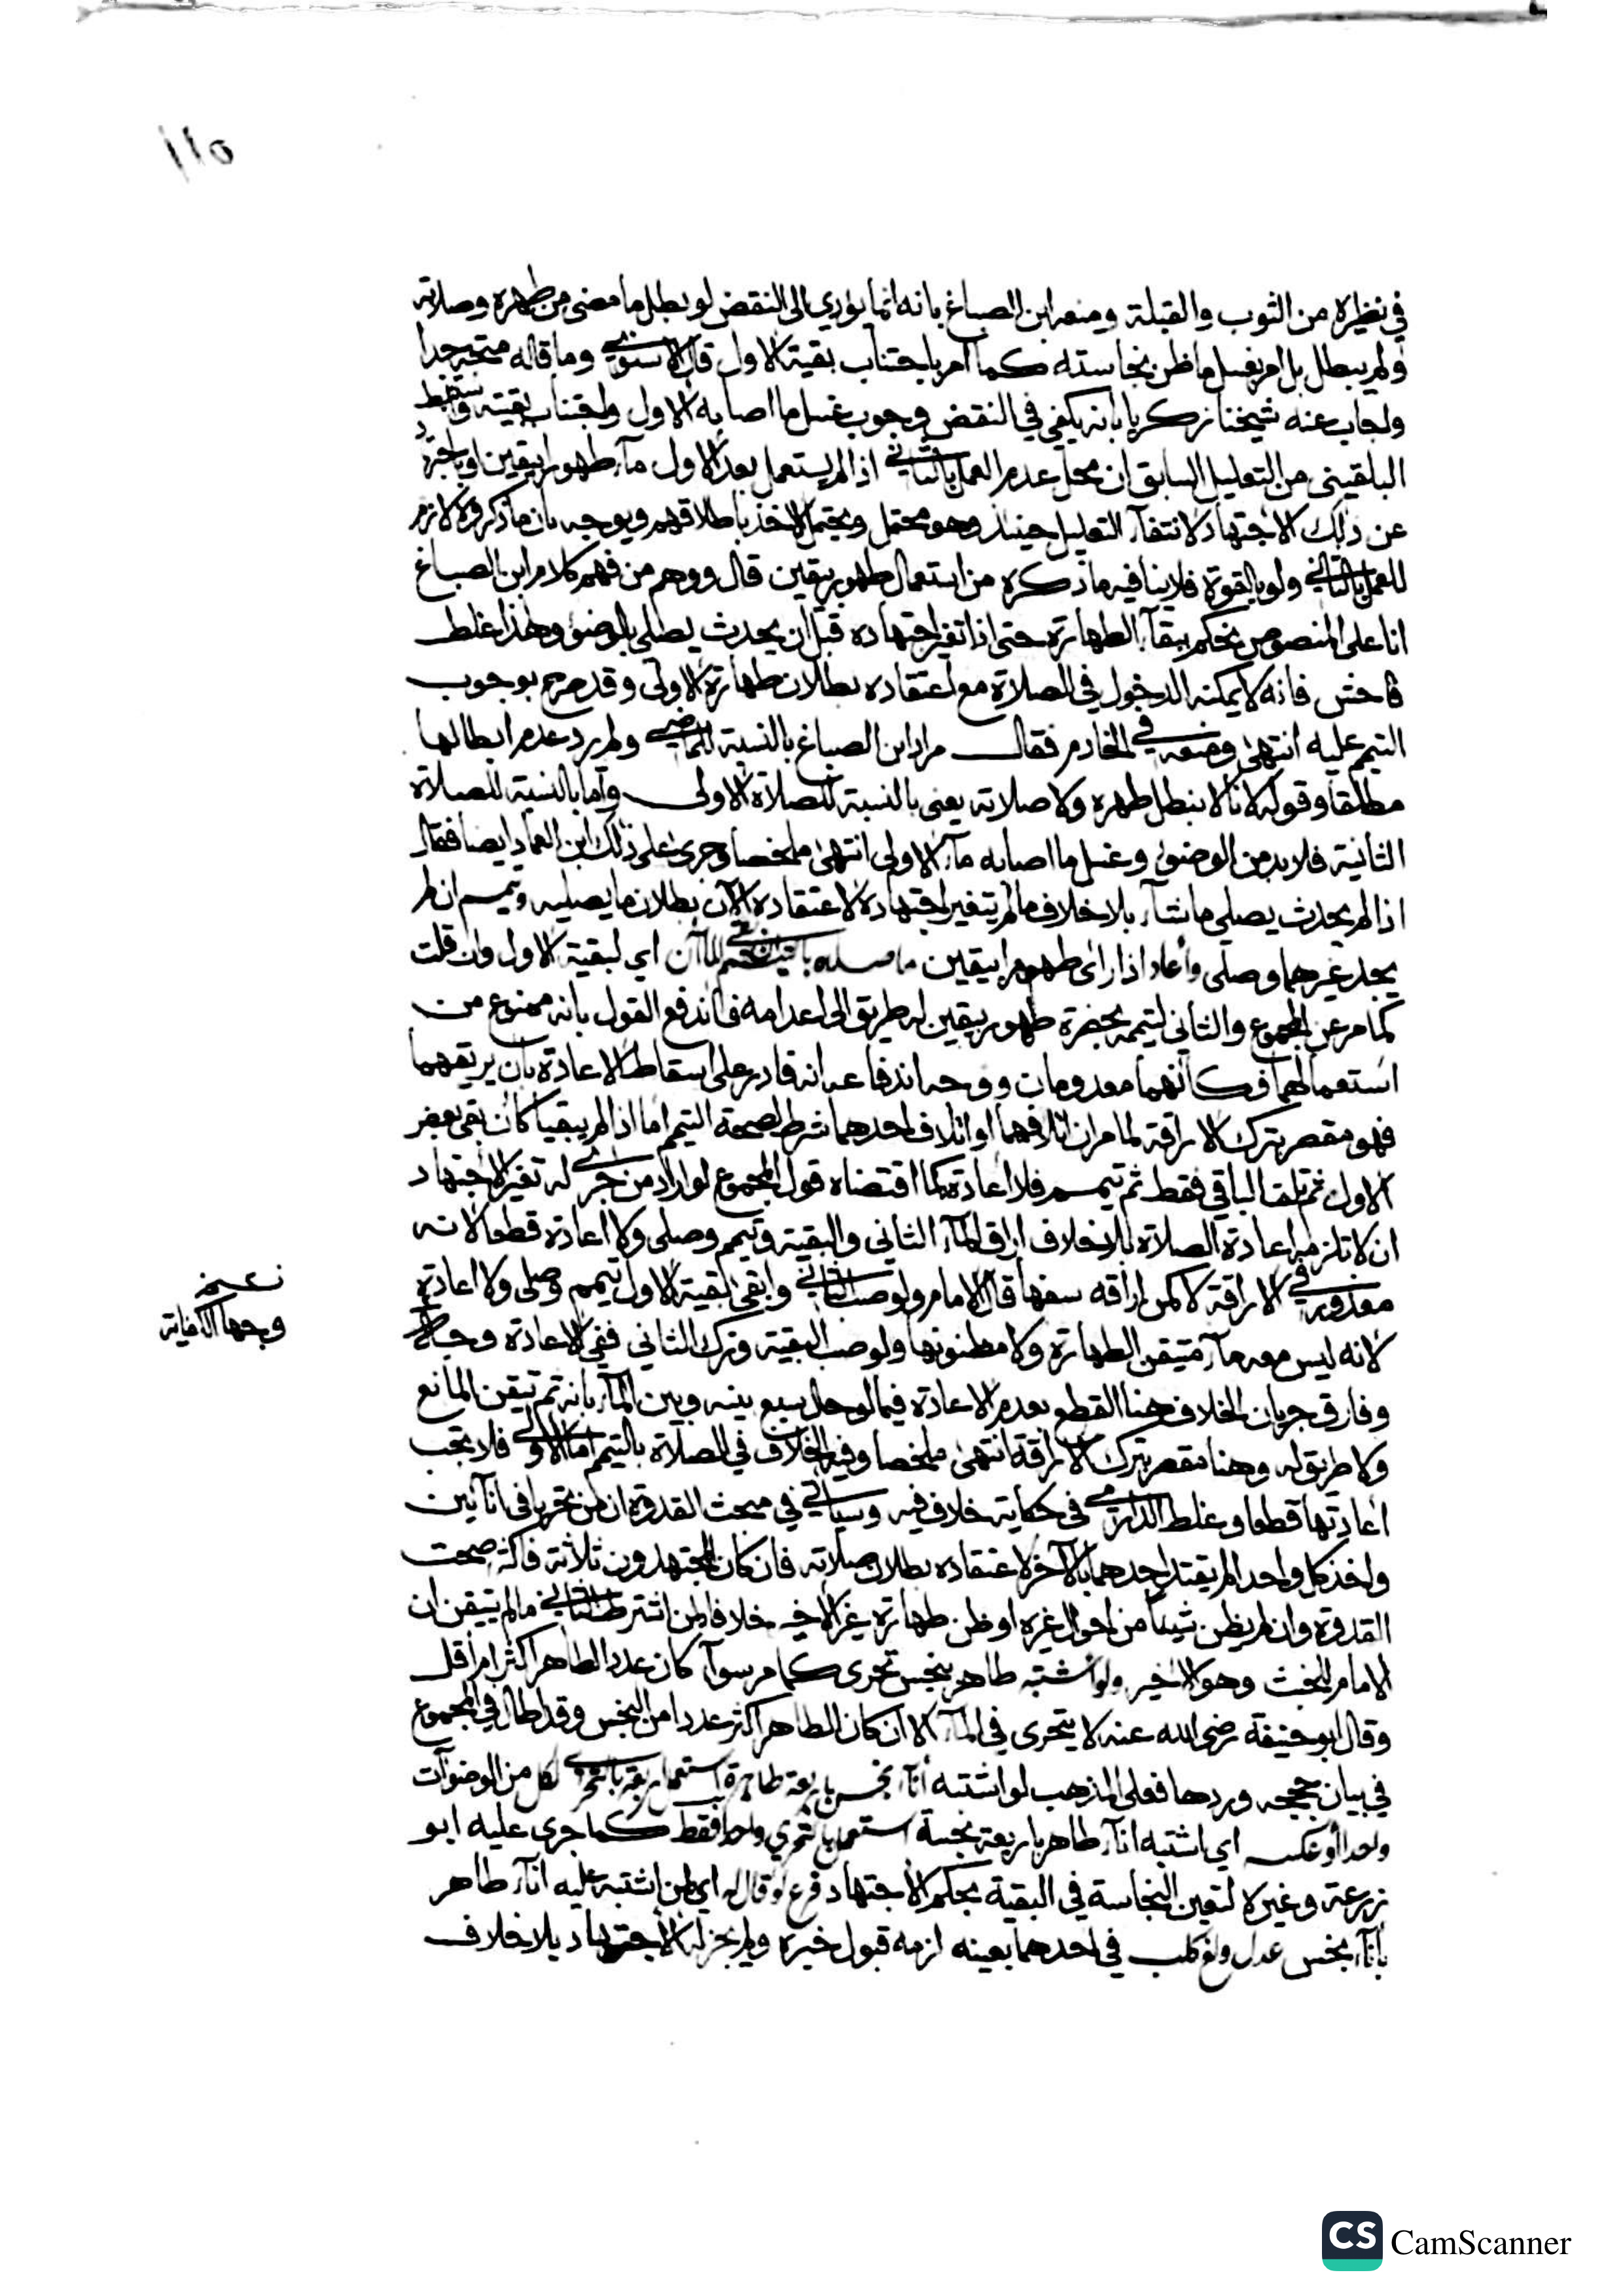 ١١٥
في نظيره من الثوب والقبلة ومنعه ابن الصباغ بانه انما يؤدي الى النقض لو بطل ما مضى من طهره وصلاته
ولم يبطل بل امر بغسل ما ظن نجاسته كما امر باجتناب بقية الاول قال الاسنوي وما قاله متجه جدا
واجاب عنه شيخنا زكريا بانه يكفي في النقض وجوب غسل ما اصابه الاول واجتناب بقيته واستنبط
البلقيني من التعليل السابق ان محل عدم العمل بالثاني اذا لم يستعمل بعد الاول مآء طهورا بيقين او باجتهاد
عن ذلك الاجتهاد لانتفآء التعليل حينئذ وهو محتمل ويحتمل الاخذ باطلاقهم ويوجه بان ما ذكروه لازم
للعمل بالثاني ولو بالقوة فلا ينافيه ما ذكره من استعمال طهور بيقين قال ووهم من فهم كلام ابن الصباغ
انا على المنصوص نحكم ببقآء الطهارة حتى اذا تغير اجتهاده قبل ان يحدث يصلي بالوضوء وهذا غلط
فاحش فانه لا يمكنه الدخول في الصلاة مع اعتقاده بطلان طهارة الاولى وقد صرح بوجوب
التيمم عليه انتهى في الخادم فقال مراد ابن الصباغ بالنسبة للماضي ولم يرد عدم ابطالها
مطلقا وقوله لانا لا نبطل طهره ولا صلاته يعني بالنسبة للصلاة الاولى واما بالنسبة للصلاة
الثانية فلا بد من الوضوء وغسل ما اصابه مآء الاولى انتهى ملخصا وجرى على ذلك ابن العماد ايضا فقال
اذا لم يحدث يصلي ما شآء بلا خلاف ما لم يتغير اجتهاده لاعتقاده الآن بطلان ما يصليه وتيمم ان لم
يجد غيرهما وصلى وأعاد اذا راى طهورا بيقين اي لبقية الاول وان قلت
كما مر عن المجموع والثاني لتيممه بحضرة طهور بيقين له طريق الى اعدامه فاندفع القول بانه ممنوع من
استعمالهما فكأنهما معدومان ووجه اندفاعه انه قادر على اسقاط الاعادة بان يريقهما
فهو مقصر بترك الاراقة لما مر ان اتلافهما او اتلاف احدهما شرط لصحة التيمم اما اذا لم يبقيا كأن بقي بعض
الاول ثم تلف الباقي فقط ثم تيمم فلا اعادة كما اقتضاه قول المجموع لو اراد من جرى له تغير الاجتهاد
ان لا تلزمه اعادة الصلاة بلا خلاف اراق المآء الثاني والبقية وتيمم وصلى ولا اعادة قطعا لانه
معذور في الاراقة لا كمن اراقه سفها قال الامام ولو صب الثاني وابقى بقية الاول تيمم وصلى ولا اعادة
لانه ليس معه مآء متيقن الطهارة ولا مظنونها ولو صب البقية وترك الثاني ففي الاعادة
وفارق جريان الخلاف هنا القطع بعدم الاعادة فيما لو حال سبع بينه وبين المآء بانه ثم تيقن المانع
ولا طريق له وهنا مقصر بترك الاراقة انتهى ملخصا وفيه الخلاف في الصلاة بالتيمم اما الاولى فلا تجب
اعادتها قطعا وغلط الدارمي في حكاية خلاف فيه وسياتي في مبحث القدوة ان من تحريا في انآئين
واخذ كل واحدا لم يقتد احدهما بالآخر لاعتقاده بطلان صلاته فان كان المجتهدون ثلاثة فاكثر صحت
القدوة وان لم يظن شيئا من احوال غيره او ظن طهارة غير الاخير خلافا لمن اشترط الثاني ما لم يتيقن ان
الامام المحدث وهو الاخير ولو اشتبه طاهر بنجس تحرى كما مر سوآء كان عدد الطاهر اكثر ام اقل
وقال ابو حنيفة رضي الله عنه لا يتحرى في المآء الا ان كان الطاهر اكثر عددا من النجس وقد اطال في المجموع
في بيان حججه وردها فعلى المذهب لو اشتبه انآء نجس باربعة طاهرة استعمل اربعة بالتحري لكل من الوضوآت
واحدا أو عكسه اي اشتبه انآء طاهر باربعة نجسة استعمل بالتحري واحدا فقط كما جرى عليه ابو
زرعة وغيره لتعين النجاسة في البقية بحكم الاجتهاد فرع لو قال له اي لمن اشتبه عليه انآء طاهر
بانآء نجس عدل ولغ كلب في احدهما بعينه لزمه قبول خبره ولم يجز له الاجتهاد بلا خلاف
CS CamScanner